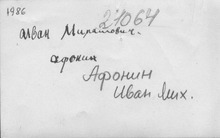 1986
21064
Иван Михайлович.
Афонин
Афонин
Иван Мих.